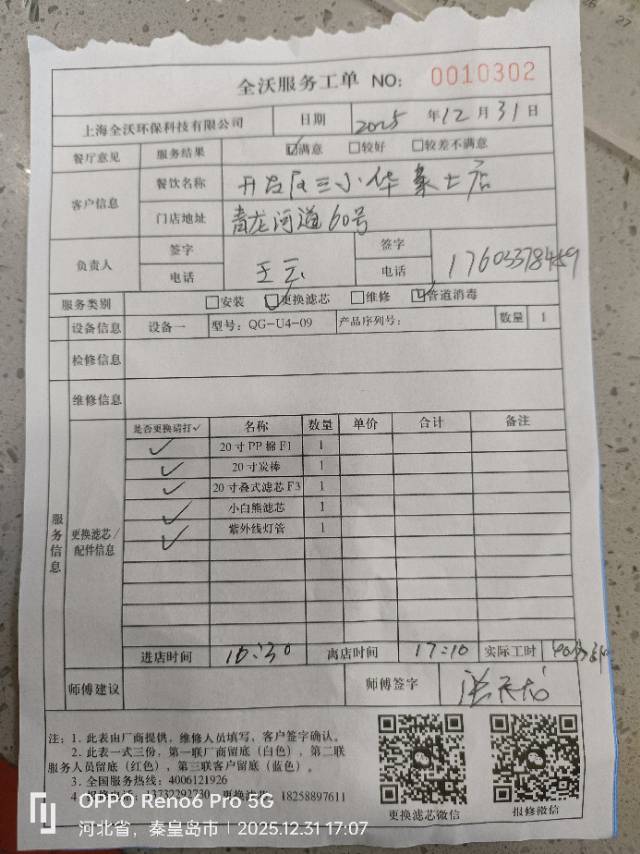 全沃服务工单 NO: 0010302
上海全沃环保科技有限公司 日期 2025 年 12 月 31 日
餐厅意见 服务结果 ☑满意 □较好 □较差不满意
客户信息 餐饮名称 开发区三小华 士店
门店地址 青龙河道60号
负责人 签字 王 签字
电话 电话 17603378459
服务类别 □安装 ☑更换滤芯 □维修 ☑管道消毒
设备信息 设备一 型号: QG-U4-09 产品序列号: 数量 1
检修信息
维修信息
服务信息 更换滤芯/配件信息
是否更换请打✓ 名称 数量 单价 合计 备注
✓ 20寸PP棉F1 1
✓ 20寸炭棒 1
✓ 20寸叠式滤芯F3 1
✓ 小白熊滤芯 1
✓ 紫外线灯管 1
进店时间 16:30 离店时间 17:10 实际工时 40分
师傅建议 师傅签字
注: 1. 此表由厂商提供, 维修人员填写, 客户签字确认。
2. 此表一式三份, 第一联厂商留底(白色), 第二联
服务人员留底(红色), 第三联客户留底(蓝色)。
3. 全国服务热线: 4006121926
4. 报修电话: 13732292730 更换滤芯: 18258897611
更换滤芯微信 报修微信
OPPO Reno6 Pro 5G
河北省, 秦皇岛市 | 2025.12.31 17:07